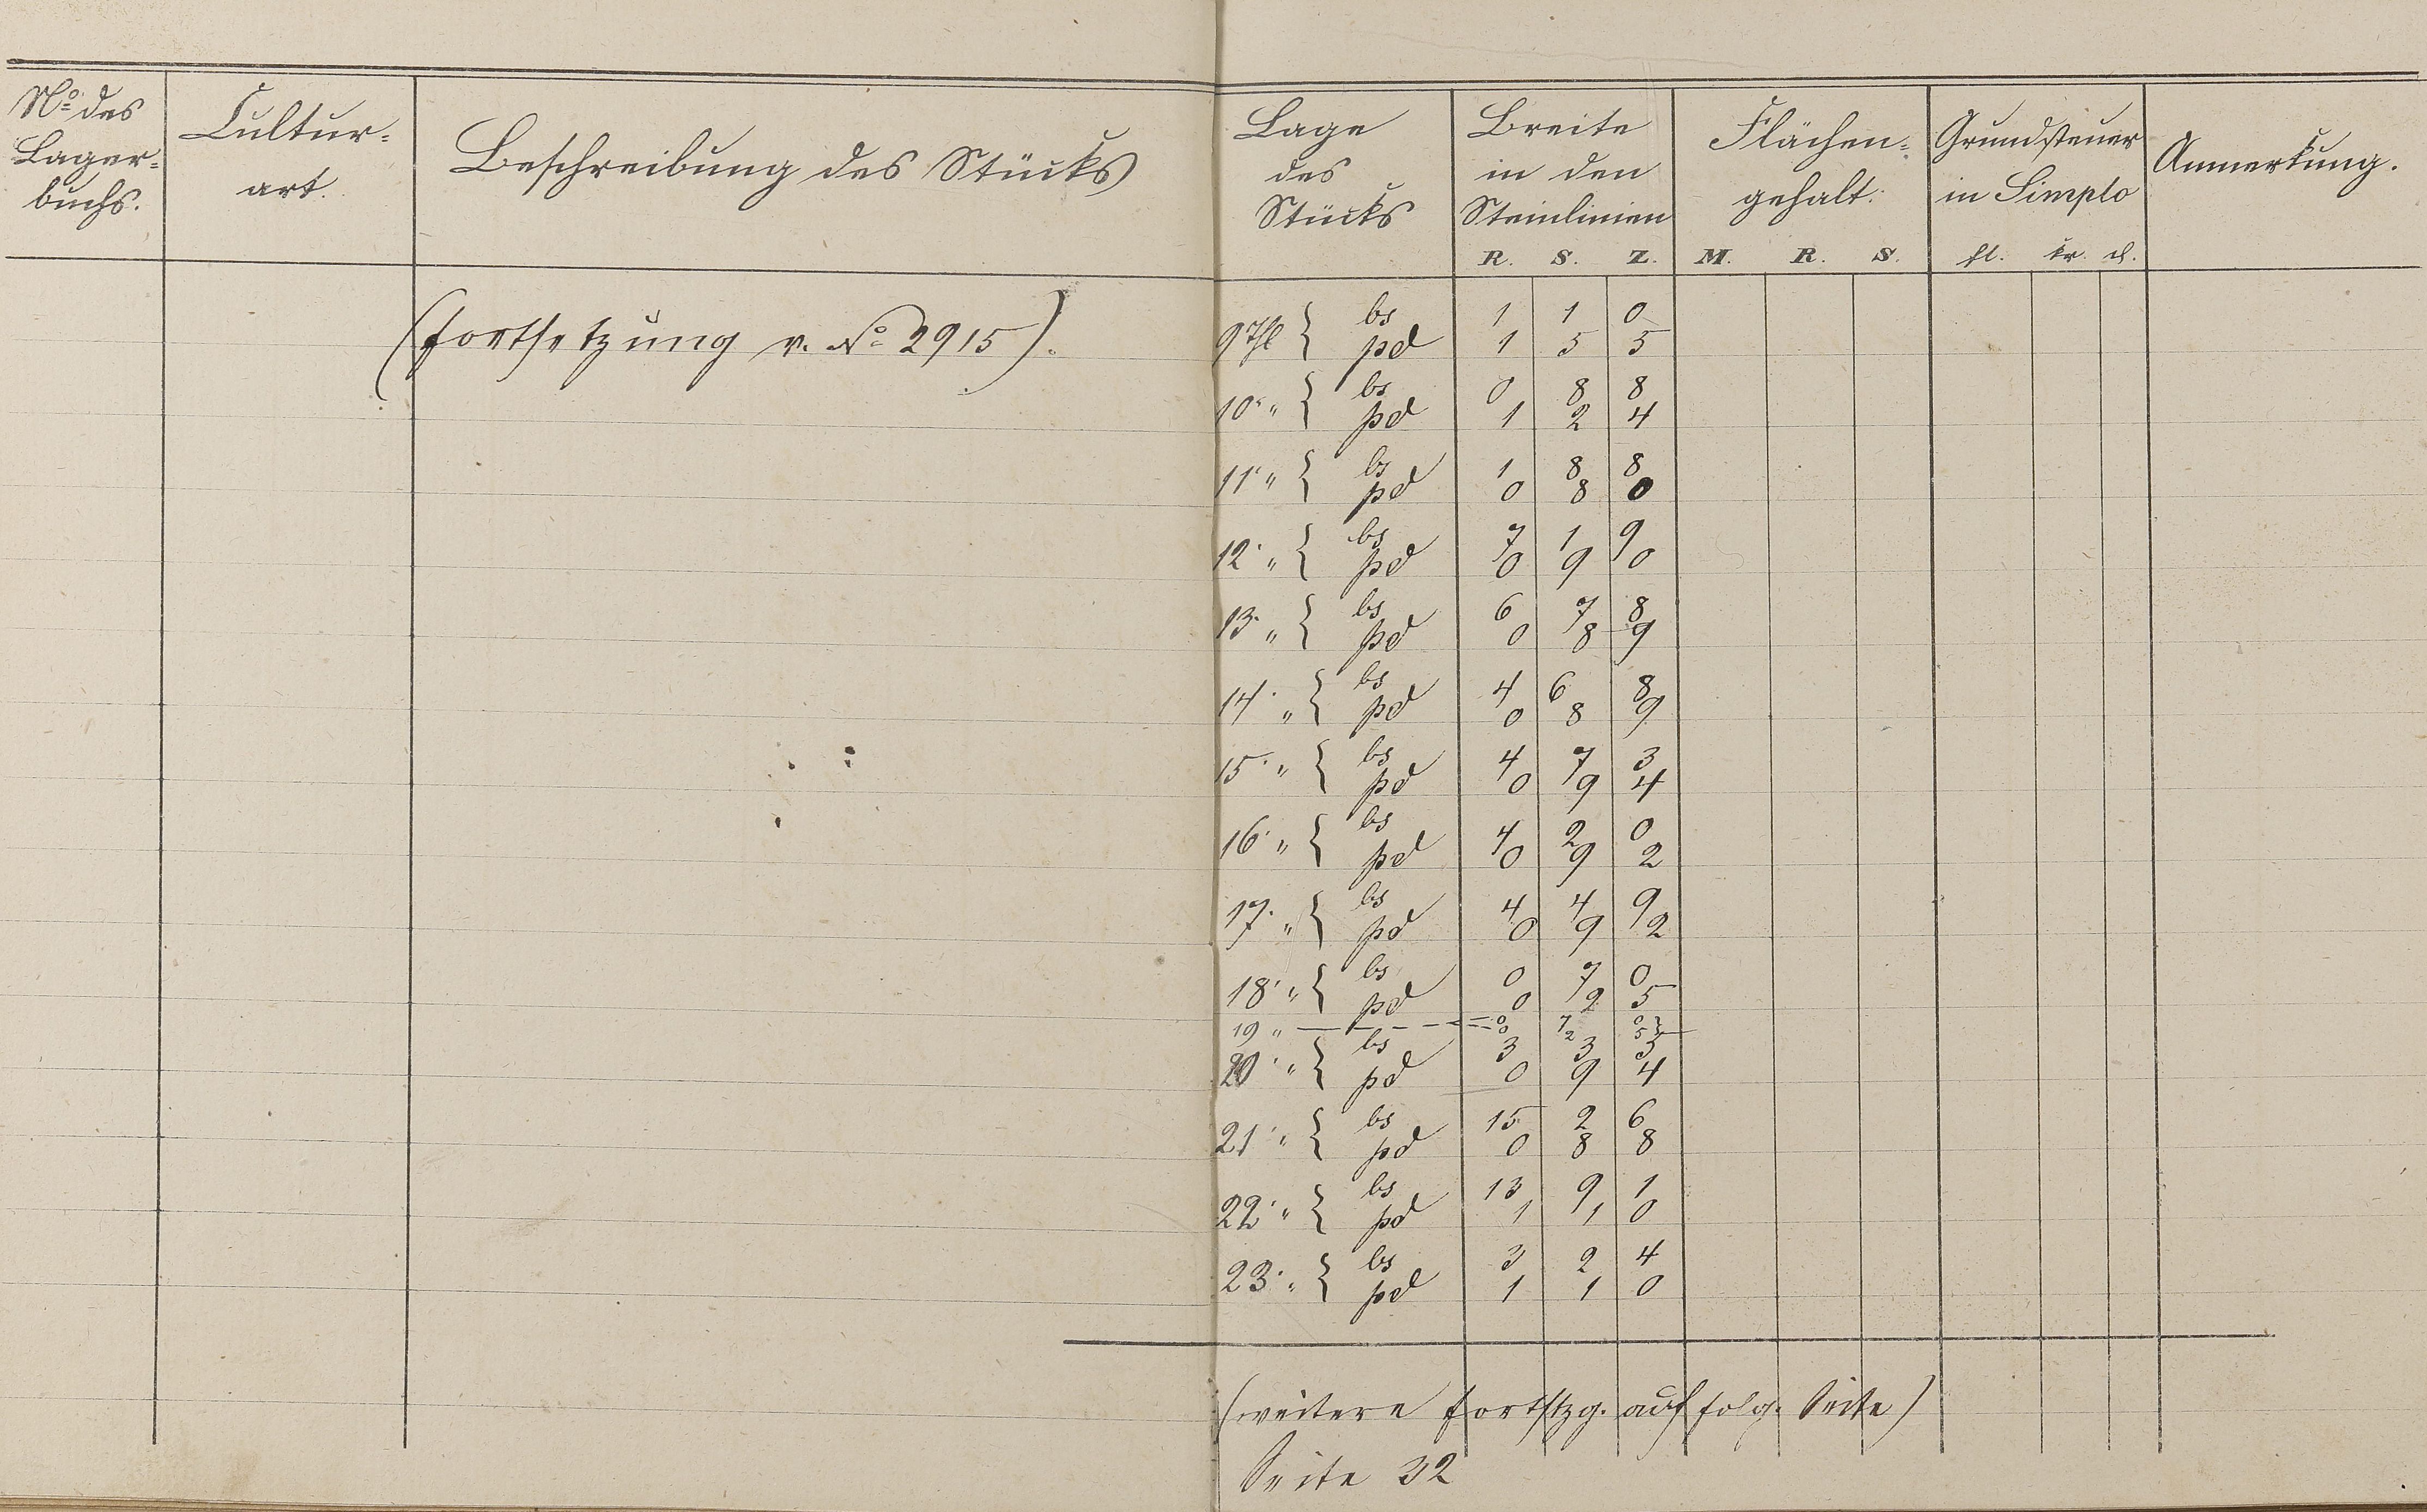 No des Lager=buchs.
Cultur=art.
Beschreibung des Stücks
Lage des Stücks
Breite in den Steinlinien
R. S. Z.
Flächen=gehalt.
M. R. S.
Grundsteuer in Simplo
fl. kr. d.
Anmerkung.
(Fortsetzung v. No 2915).
9 Thl { bs 1 1 0
pd 1 5 5
10. " { bs 0 8 8
pd 1 2 4
11. " { bs 1 8 8
pd 0 8 0
12. " { bs 7 1 9
pd 0 9 0
13. " { bs 6 7 8
pd 0 8 9
14. " { bs 4 6 8
pd 0 8 9
15. " { bs 4 7 3
pd 0 9 4
16. " { bs 4 2 0
pd 0 9 2
17. " { bs 4 4 9
pd 0 9 2
18. " { bs 0 7 0
pd 0 2 5
19 " 0 7 0
0 2 5
20. " { bs 3 3 3
pd 0 9 4
21. " { bs 15 2 6
pd 0 8 8
22. " { bs 13 9 1
pd 1 1 0
23. " { bs 3 2 4
pd 1 1 0
(weitere Fortstzg. auf folg. Seite)
Seite 32